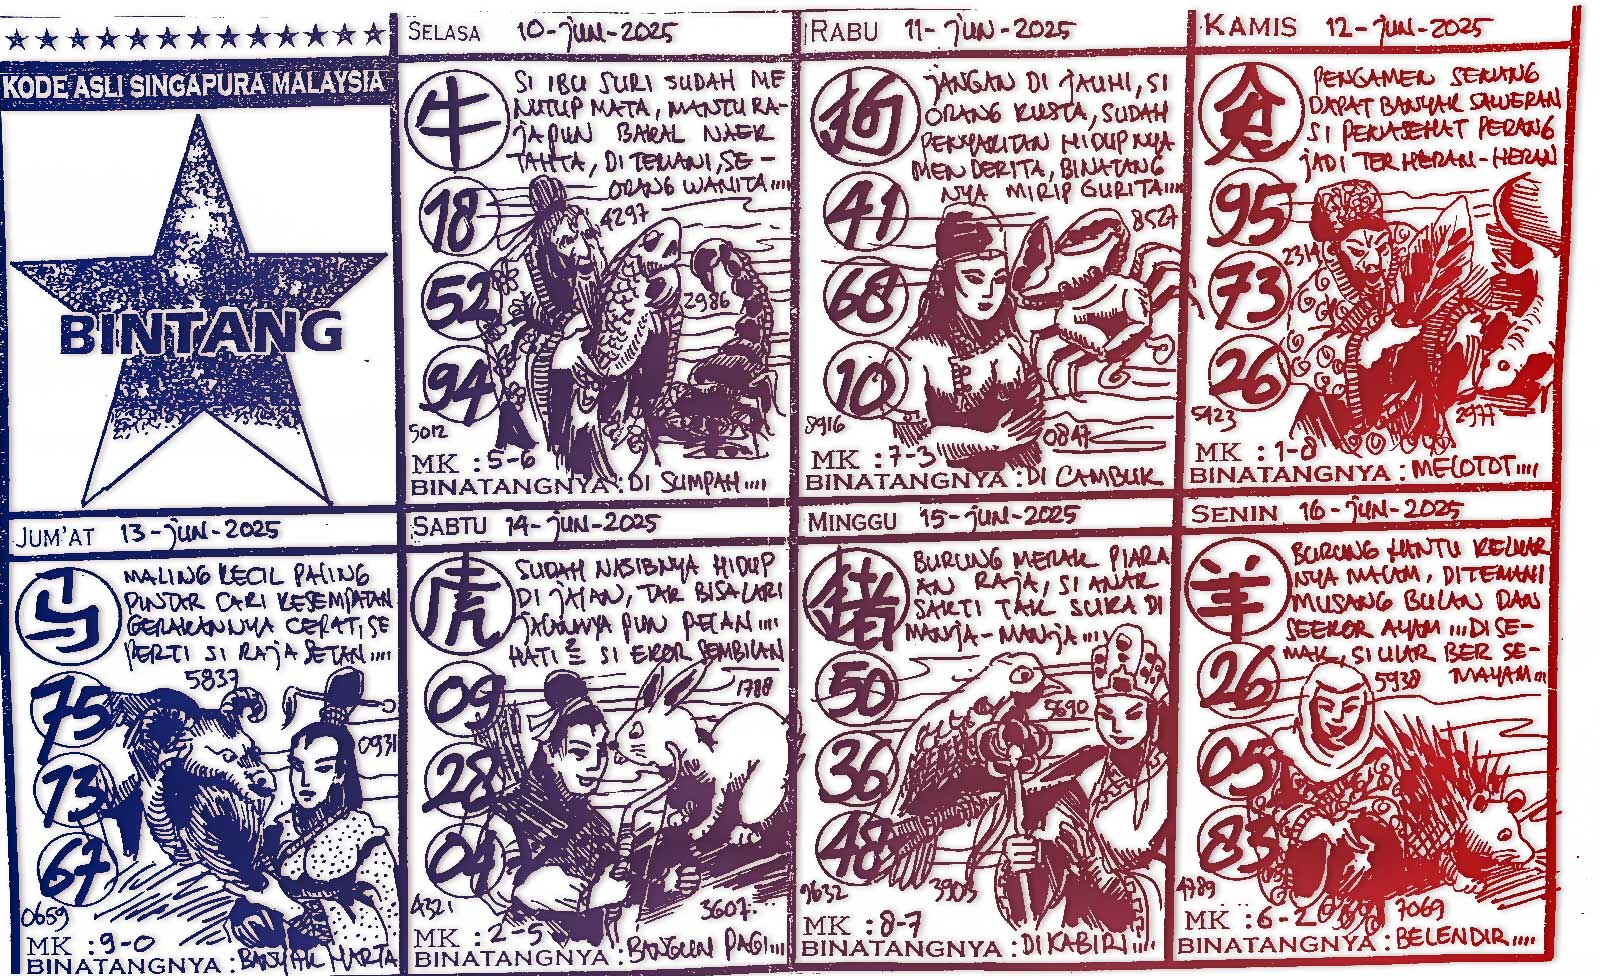 KODE ASLI SINGAPURA MALAYSIA
BINTANG
SELASA 10-JUN-2025
牛
SI IBU SURI SUDAH ME
NUTUP MATA, MANTU RA-
JA PUN BAKAL NAEK
TAHTA, DITEMANI, SE-
ORANG WANITA....
18
4297
52
2986
94
5012
MK : 5-6
BINATANGNYA : DI SUMPAH....
RABU 11-JUN-2025
狗
JANGAN DI JAUHI, SI
ORANG KUSTA, SUDAH
PENYAKITAN HIDUPNYA
MENDERITA, BINATANG
NYA MIRIP GURITA....
41
8527
68
10
8916
0847
MK : 7-3
BINATANGNYA : DI CAMBUK
KAMIS 12-JUN-2025
PENGAMEN SENANG
DAPAT BANYAK SAWERAN
SI PENASEHAT PERANG
JADI TERHERAN-HERAN
95
2314
73
26
5423
2977
MK : 1-8
BINATANGNYA : MELOTOT....
JUM'AT 13-JUN-2025
马
MALING KECIL PALING
PINTAR CARI KESEMPATAN
GERAKANNYA CEPAT, SE
PERTI SI RAJA SETAN....
5837
75
0931
73
67
0659
MK : 9-0
BINATANGNYA : BANYAK HARTA
SABTU 14-JUN-2025
虎
SUDAH NASIBNYA HIDUP
DI JALAN, TAK BISA LARI
JALANNYA PUN PELAN....
HATI 2 SI EKOR SEMBILAN
09
1788
28
04
4321
3607
MK : 2-5
BINATANGNYA : BANGUN PAGI....
MINGGU 15-JUN-2025
猪
BURUNG MERAK PIARA
AN RAJA, SI ANAK
SAKTI TAK SUKA DI
MANJA-MANJA....
50
5690
36
48
9632
3905
MK : 8-7
BINATANGNYA : DI KABIRI....
SENIN 16-JUN-2025
羊
BURUNG HANTU KELUAR
NYA MALAM, DITEMANI
MUSANG BULAN DAN
SEEKOR AYAM ...DI SE-
MAK, SI ULAR BER SE-
MAYAM...
26
5938
05
83
4789
7069
MK : 6-2
BINATANGNYA : BELENDIR....